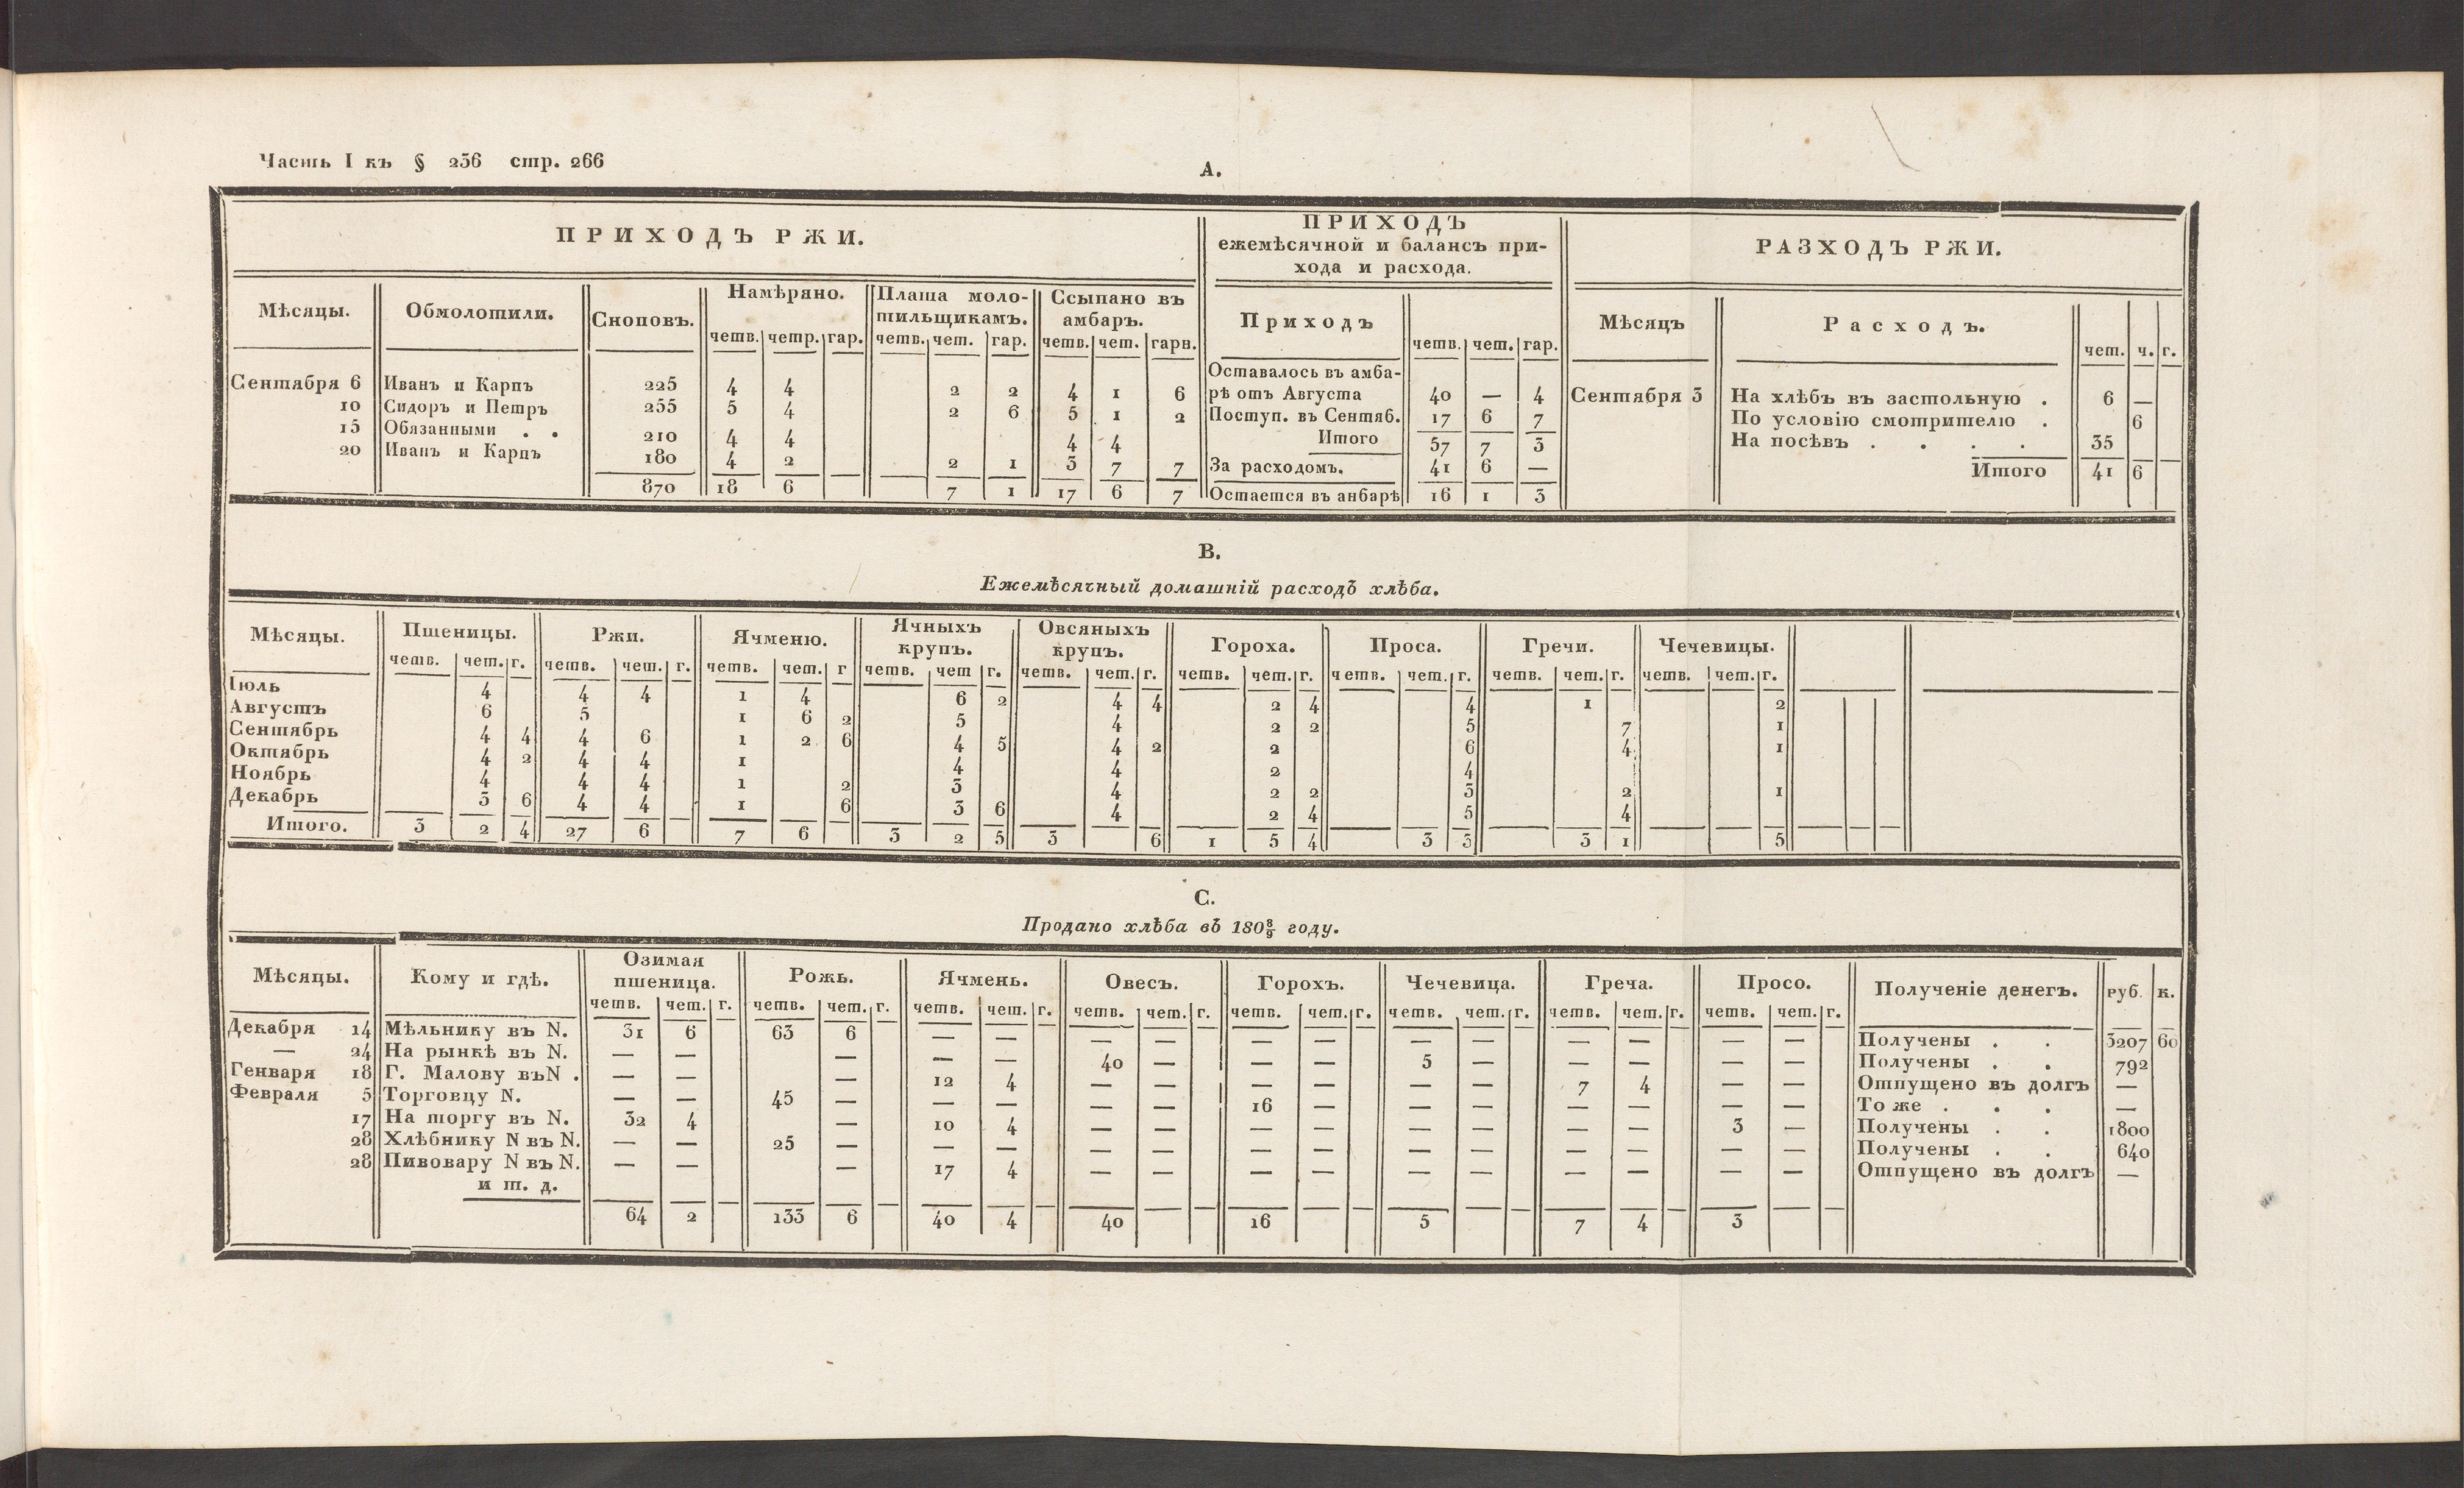 Часть I къ § 256 стр. 266
A.
ПРИХОДЪ РЖИ.
ПРИХОДЪ
ежемѣсячной и балансъ при-
хода и расхода.
РАЗХОДЪ РЖИ.
Мѣсяцы. Обмолотили. Сноповъ. Намѣряно. Плата моло- Ссыпано въ Приходъ Мѣсяцъ Расходъ.
тильщикамъ. амбаръ.
четв. четр. гар. четв. чет. гар. четв. чет. гарн. четв. чет. гар. чет. ч. г.
Оставалось въ амба-
Сентября 6 Иванъ и Карпъ 225 4 4 2 2 4 1 6 рѣ отъ Августа 40 — 4 Сентября 3 На хлѣбъ въ застольную . 6 —
10 Сидоръ и Петръ 255 5 4 2 6 5 1 2 Поступ. въ Сентяб. 17 6 7 По условію смотрителю . 6
15 Обязанными . . 210 4 4 4 4 Итого 57 7 3 На посѣвъ . . . . 35
20 Иванъ и Карпъ 180 4 2 2 1 3 7 7 За расходомъ. 41 6 — Итого 41 6
870 18 6 7 1 17 6 7 Остается въ анбарѣ 16 1 3
B.
Ежемѣсячный домашній расходъ хлѣба.
Мѣсяцы. Пшеницы. Ржи. Ячменю. Ячныхъ крупъ. Овсяныхъ крупъ. Гороха. Проса. Гречи. Чечевицы.
четв. чет. г. четв. чет. г. четв. чет. г четв. чет г. четв. чет. г. четв. чет. г. четв. чет. г. четв. чет. г. четв. чет. г.
Іюль 4 4 4 1 4 6 2 4 4 2 4 4 1 2
Августъ 6 5 1 6 2 5 4 2 2 5 7 1
Сентябрь 4 4 4 6 1 2 6 4 5 4 2 2 6 4 1
Октябрь 4 2 4 4 1 4 4 2 4
Ноябрь 4 4 4 1 2 3 4 2 2 3 2 1
Декабрь 3 6 4 4 1 6 3 6 4 2 4 5 4
Итого. 3 2 4 27 6 7 6 3 2 5 3 6 1 5 4 3 3 3 1 5
C.
Продано хлѣба въ 180 8/9 году.
Мѣсяцы. Кому и гдѣ. Озимая пшеница. Рожь. Ячмень. Овесъ. Горохъ. Чечевица. Греча. Просо. Полученіе денегъ. руб. к.
четв. чет. г. четв. чет. г. четв. чет. г. четв. чет. г. четв. чет. г. четв. чет. г. четв. чет. г. четв. чет. г.
Декабря 14 Мѣльнику въ N. 31 6 63 6 — — — — — — — — — — — — Получены . . 3207 60
— 24 На рынкѣ въ N. — — — — — 40 — — — 5 — — — — — Получены . . 792
Генваря 18 Г. Малову въ N . — — — 12 4 — — — — — — 7 4 — — Отпущено въ долгъ —
Февраля 5 Торговцу N. — — 45 — — — — — 16 — — — — — — — То же . . . —
17 На торгу въ N. 32 4 — 10 4 — — — — — — — — 3 — Получены . . 1800
28 Хлѣбнику N въ N. — — 25 — — — — — — — — — — — — — Получены . . 640
28 Пивовару N въ N. — — — 17 4 — — — — — — — — — — Отпущено въ долгъ —
и т. д.
64 2 133 6 40 4 40 16 5 7 4 3